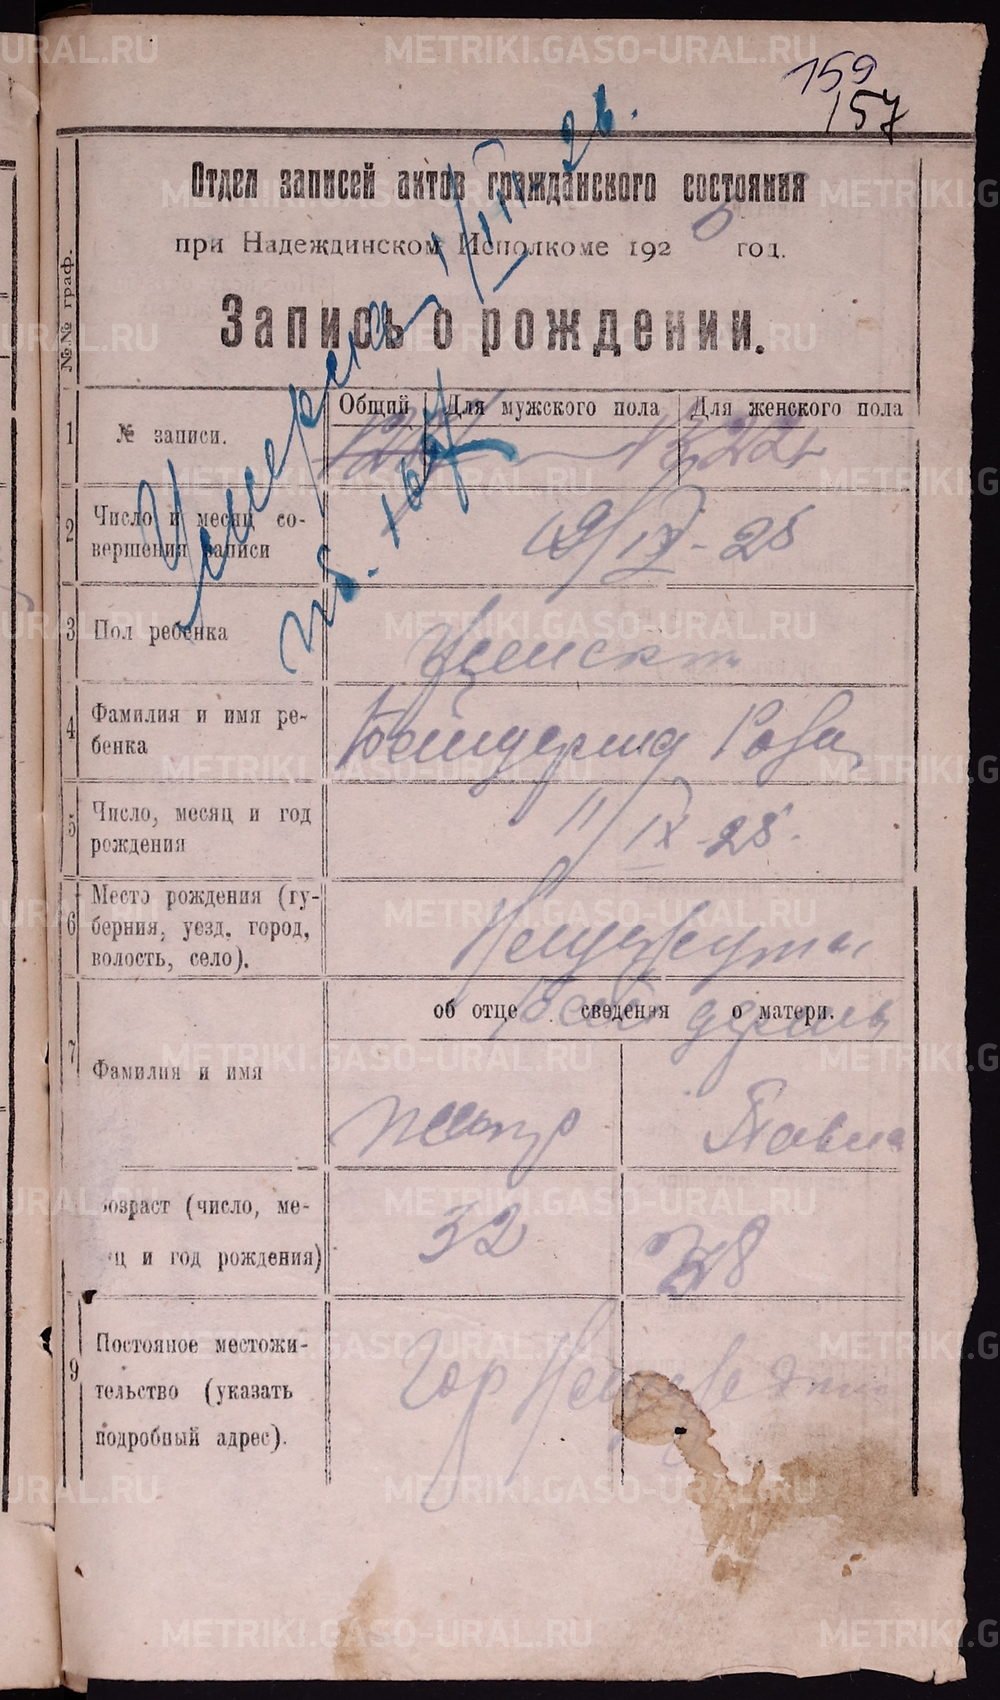 159
157
Отдел записей актов гражданского состояния
при Надеждинском Исполкоме 1925 год.
Запись о рождении.
Умерла 1/III 26.
№№ граф.
Общий Для мужского пола Для женского пола
1 № записи.
1322
2 Число и месяц со-
вершения записи
19/IX - 25
3 Пол ребенка
Женск
4 Фамилия и имя ре-
бенка
Роза
5 Число, месяц и год
рождения
11/IX - 25.
6 Место рождения (гу-
берния, уезд, город,
волость, село).
об отце сведения о матери.
7 Фамилия и имя
Петр Павла
Возраст (число, ме-
яц и год рождения)
32 28
9 Постоянное местожи-
тельство (указать
подробный адрес).
Гор Надежд
METRIKI.GASO-URAL.RU